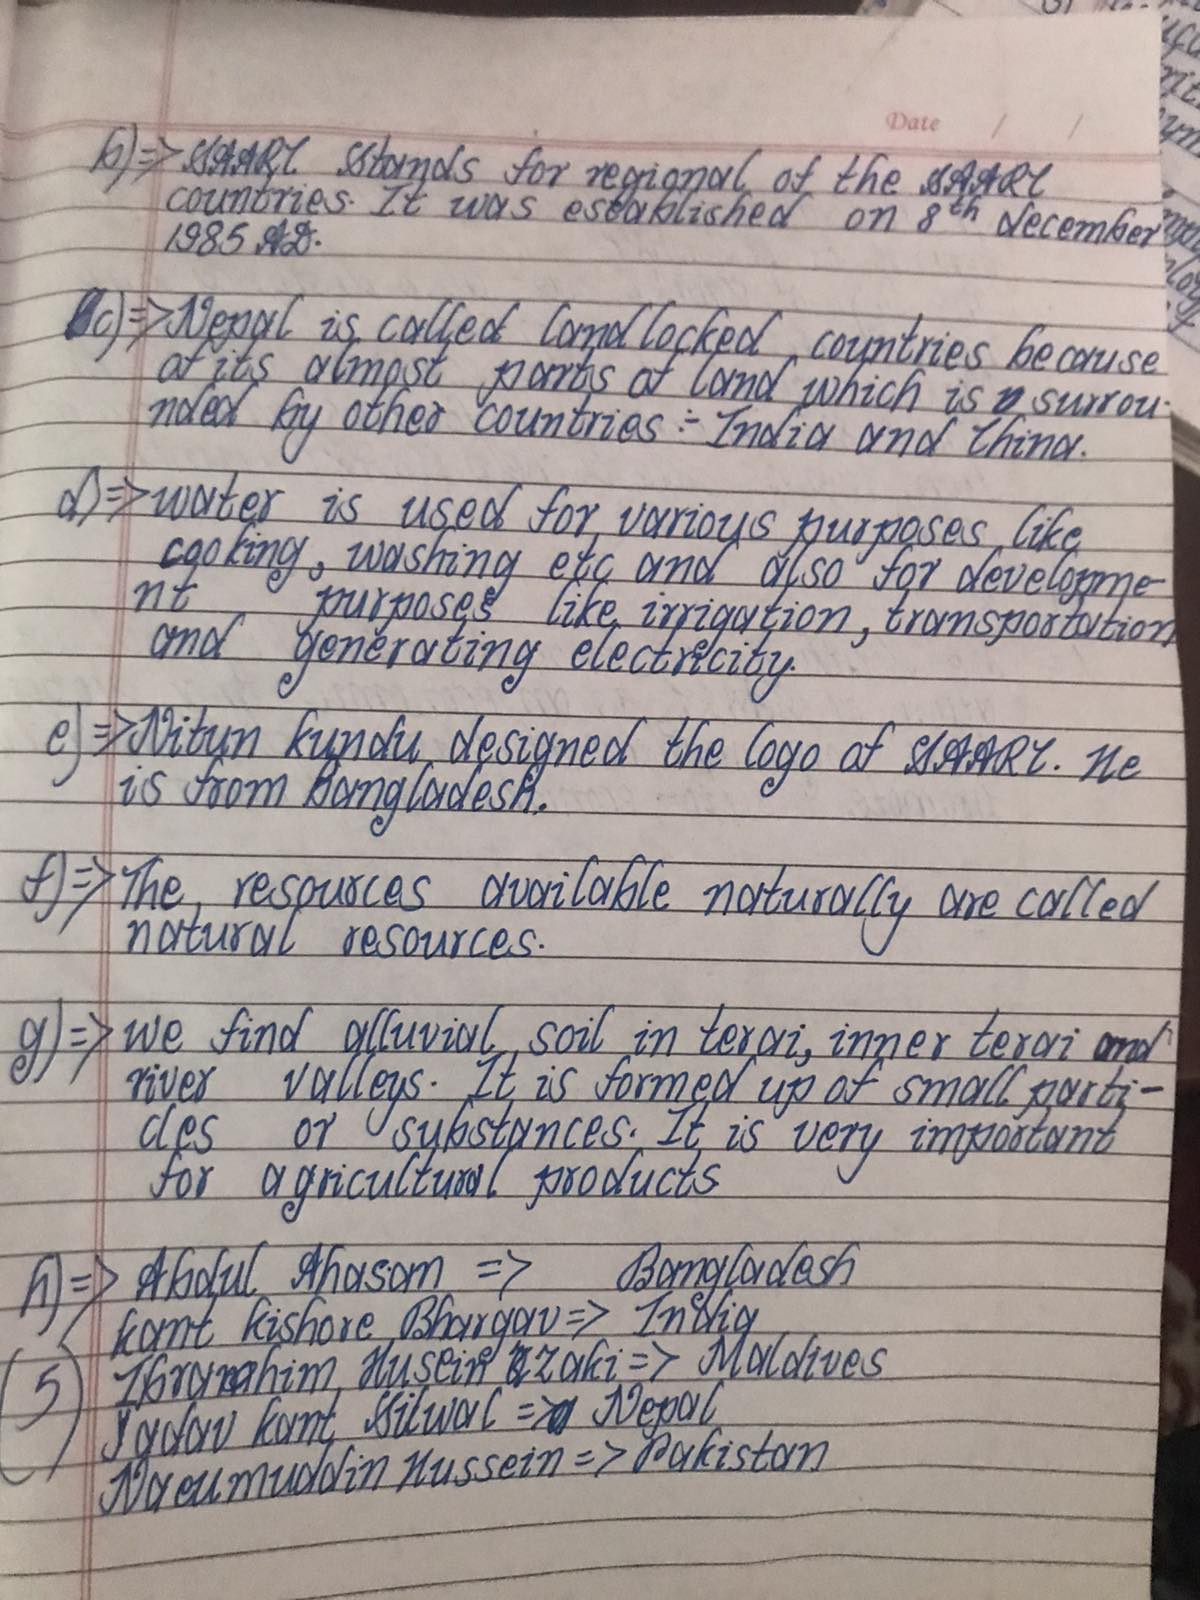 Date / /
b)=> SAARC stands for regional of the SAARC
countries. It was established on 8th december
1985 AD.
c)=> Nepal is called landlocked countries because
of its almost parts of land which is surrou-
nded by other countries :- India and China.
d)=> water is used for various purposes like
cooking, washing etc and also for developme-
nt purposes like irrigation, transportation
and generating electricity.
e)=> Nityn kundu designed the logo of SAARC. He
is from Bangladesh.
f)=> The resources available naturally are called
natural resources.
g)=> we find alluvial soil in terai, inner terai and
river valleys. It is formed up of small parti-
cles or substances. It is very important
for agricultural products
h)=> Abdul Ahasam => Bangladesh
kant kishore Bhargav => India
(5) Ibrahim Husein zaki => Maldives
Yadav kant Silwal => Nepal
Naeumuddin Hussein => Pakistan